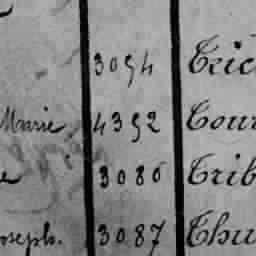 3094 Tric
Marie 4392 Cour
e 3080 Trib
oseph. 3087 Thu